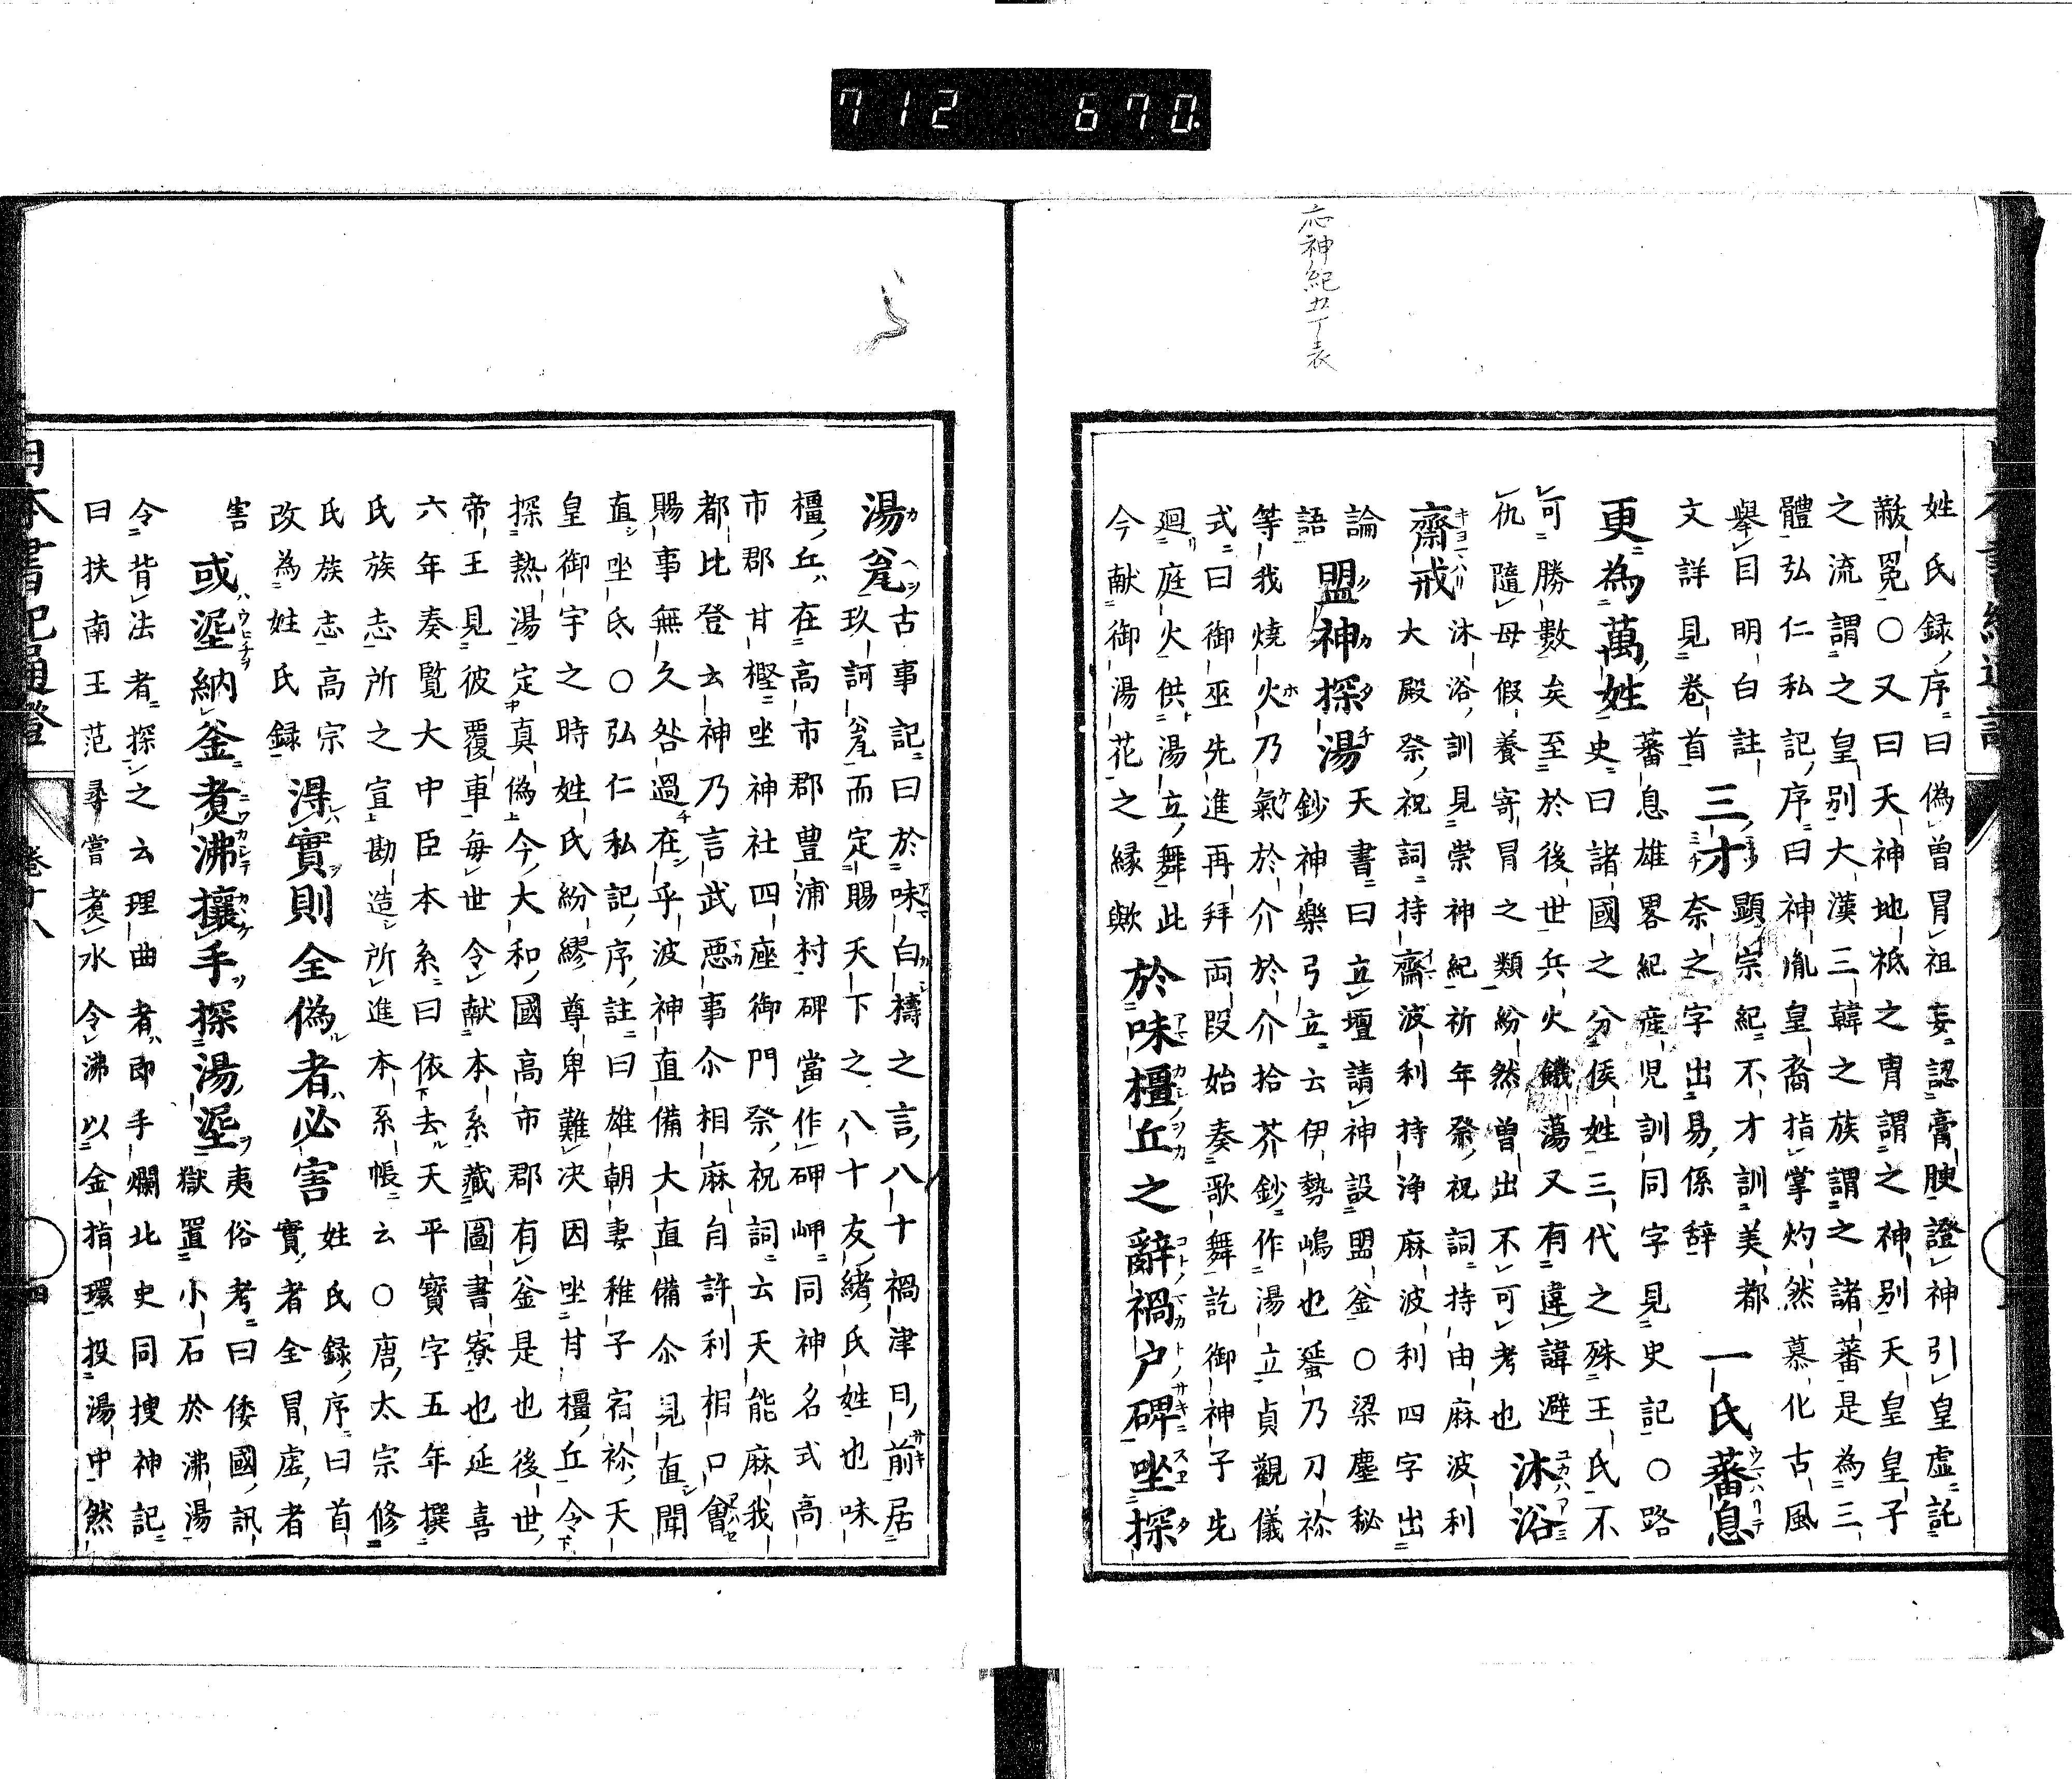 712 670.
応神紀五丁表
姓氏録序曰偽曽冒祖妄認膏腴證神引皇虚託
黻冕〇又曰天神地祗之冑謂之神別天皇皇子
之流謂之皇別大漢三韓之族謂之諸蕃是為三
體弘仁私記序曰神胤皇裔指掌灼然慕化古風
擧目明白註 三才 顯宗紀不才訓美都
文詳見卷首 奈之字出易係辞 一氏蕃息
更為萬姓 蕃息雄畧紀産児訓同字見史記〇路
史曰諸國之分侯姓三代之殊王氏不
可勝數矣至於後世兵火饑蕩又有違諱避
仇隨母假養寄冒之類紛然曽出不可考也 沐浴
齋戒 沐浴訓見崇神紀祈年祭祝詞持由麻波利
大殿祭祝詞持齋波利持浄麻波利四字出
論語 盟神探湯 天書曰立壇請神設盟釜〇梁塵秘
鈔神樂弓立云伊勢嶋也蜑乃刀祢
等我燒火乃氣於介於介拾芥鈔作湯立貞觀儀
式曰御巫先進再拜両段始奏歌舞訖御神子先
廻庭火供湯立舞此
今献御湯花之縁歟 於味橿丘之辭禍戸碑坐探
湯瓮 古事記曰於味白檮之言八十禍津日前居
玖訶瓮而定賜天下之八十友緒氏姓也味
橿丘在高市郡豊浦村碑當作岬岬同神名式高
市郡甘樫坐神社四座御門祭祝詞云天能麻我
都比登云神乃言武惡事尒相麻自許利相口會
賜事無久咎過在乎波神直備大直備尒見直聞
直坐氐〇弘仁私記序註曰雄朝妻稚子宿祢天
皇御宇之時姓氏紛繆尊卑難決因坐甘橿丘令
探熱湯定真偽今大和國高市郡有釜是也後世
帝王見彼覆車毎世令献本系藏圖書寮也延喜
六年奏覧大中臣本系曰依去天平寳字五年撰
氏族志所之宣勘造所進本系帳云〇唐太宗修
氏族志高宗
改為姓氏録 淂實則全偽者必害 姓氏録序曰首
實者全冒虚者
害 或埿納釜煑沸攘手探湯埿 夷俗考曰倭國訊
獄置小石於沸湯
令背法者探之云理曲者即手爛北史同捜神記
曰扶南王范尋嘗煑水令沸以金指環投湯中然
日本書紀通證 卷十八 四